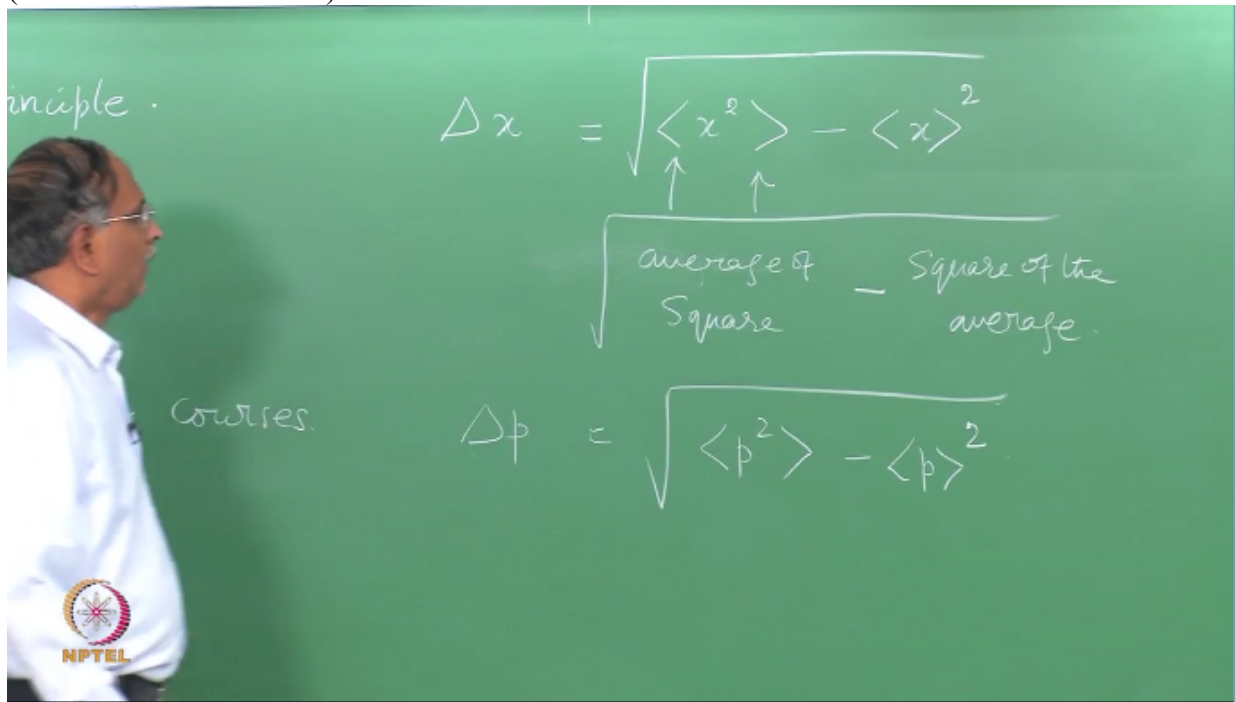 inciple.
Δx = √<x²> - <x>²
√average of Square - Square of the average.
courses.
Δp = √<p²> - <p>²
NPTEL